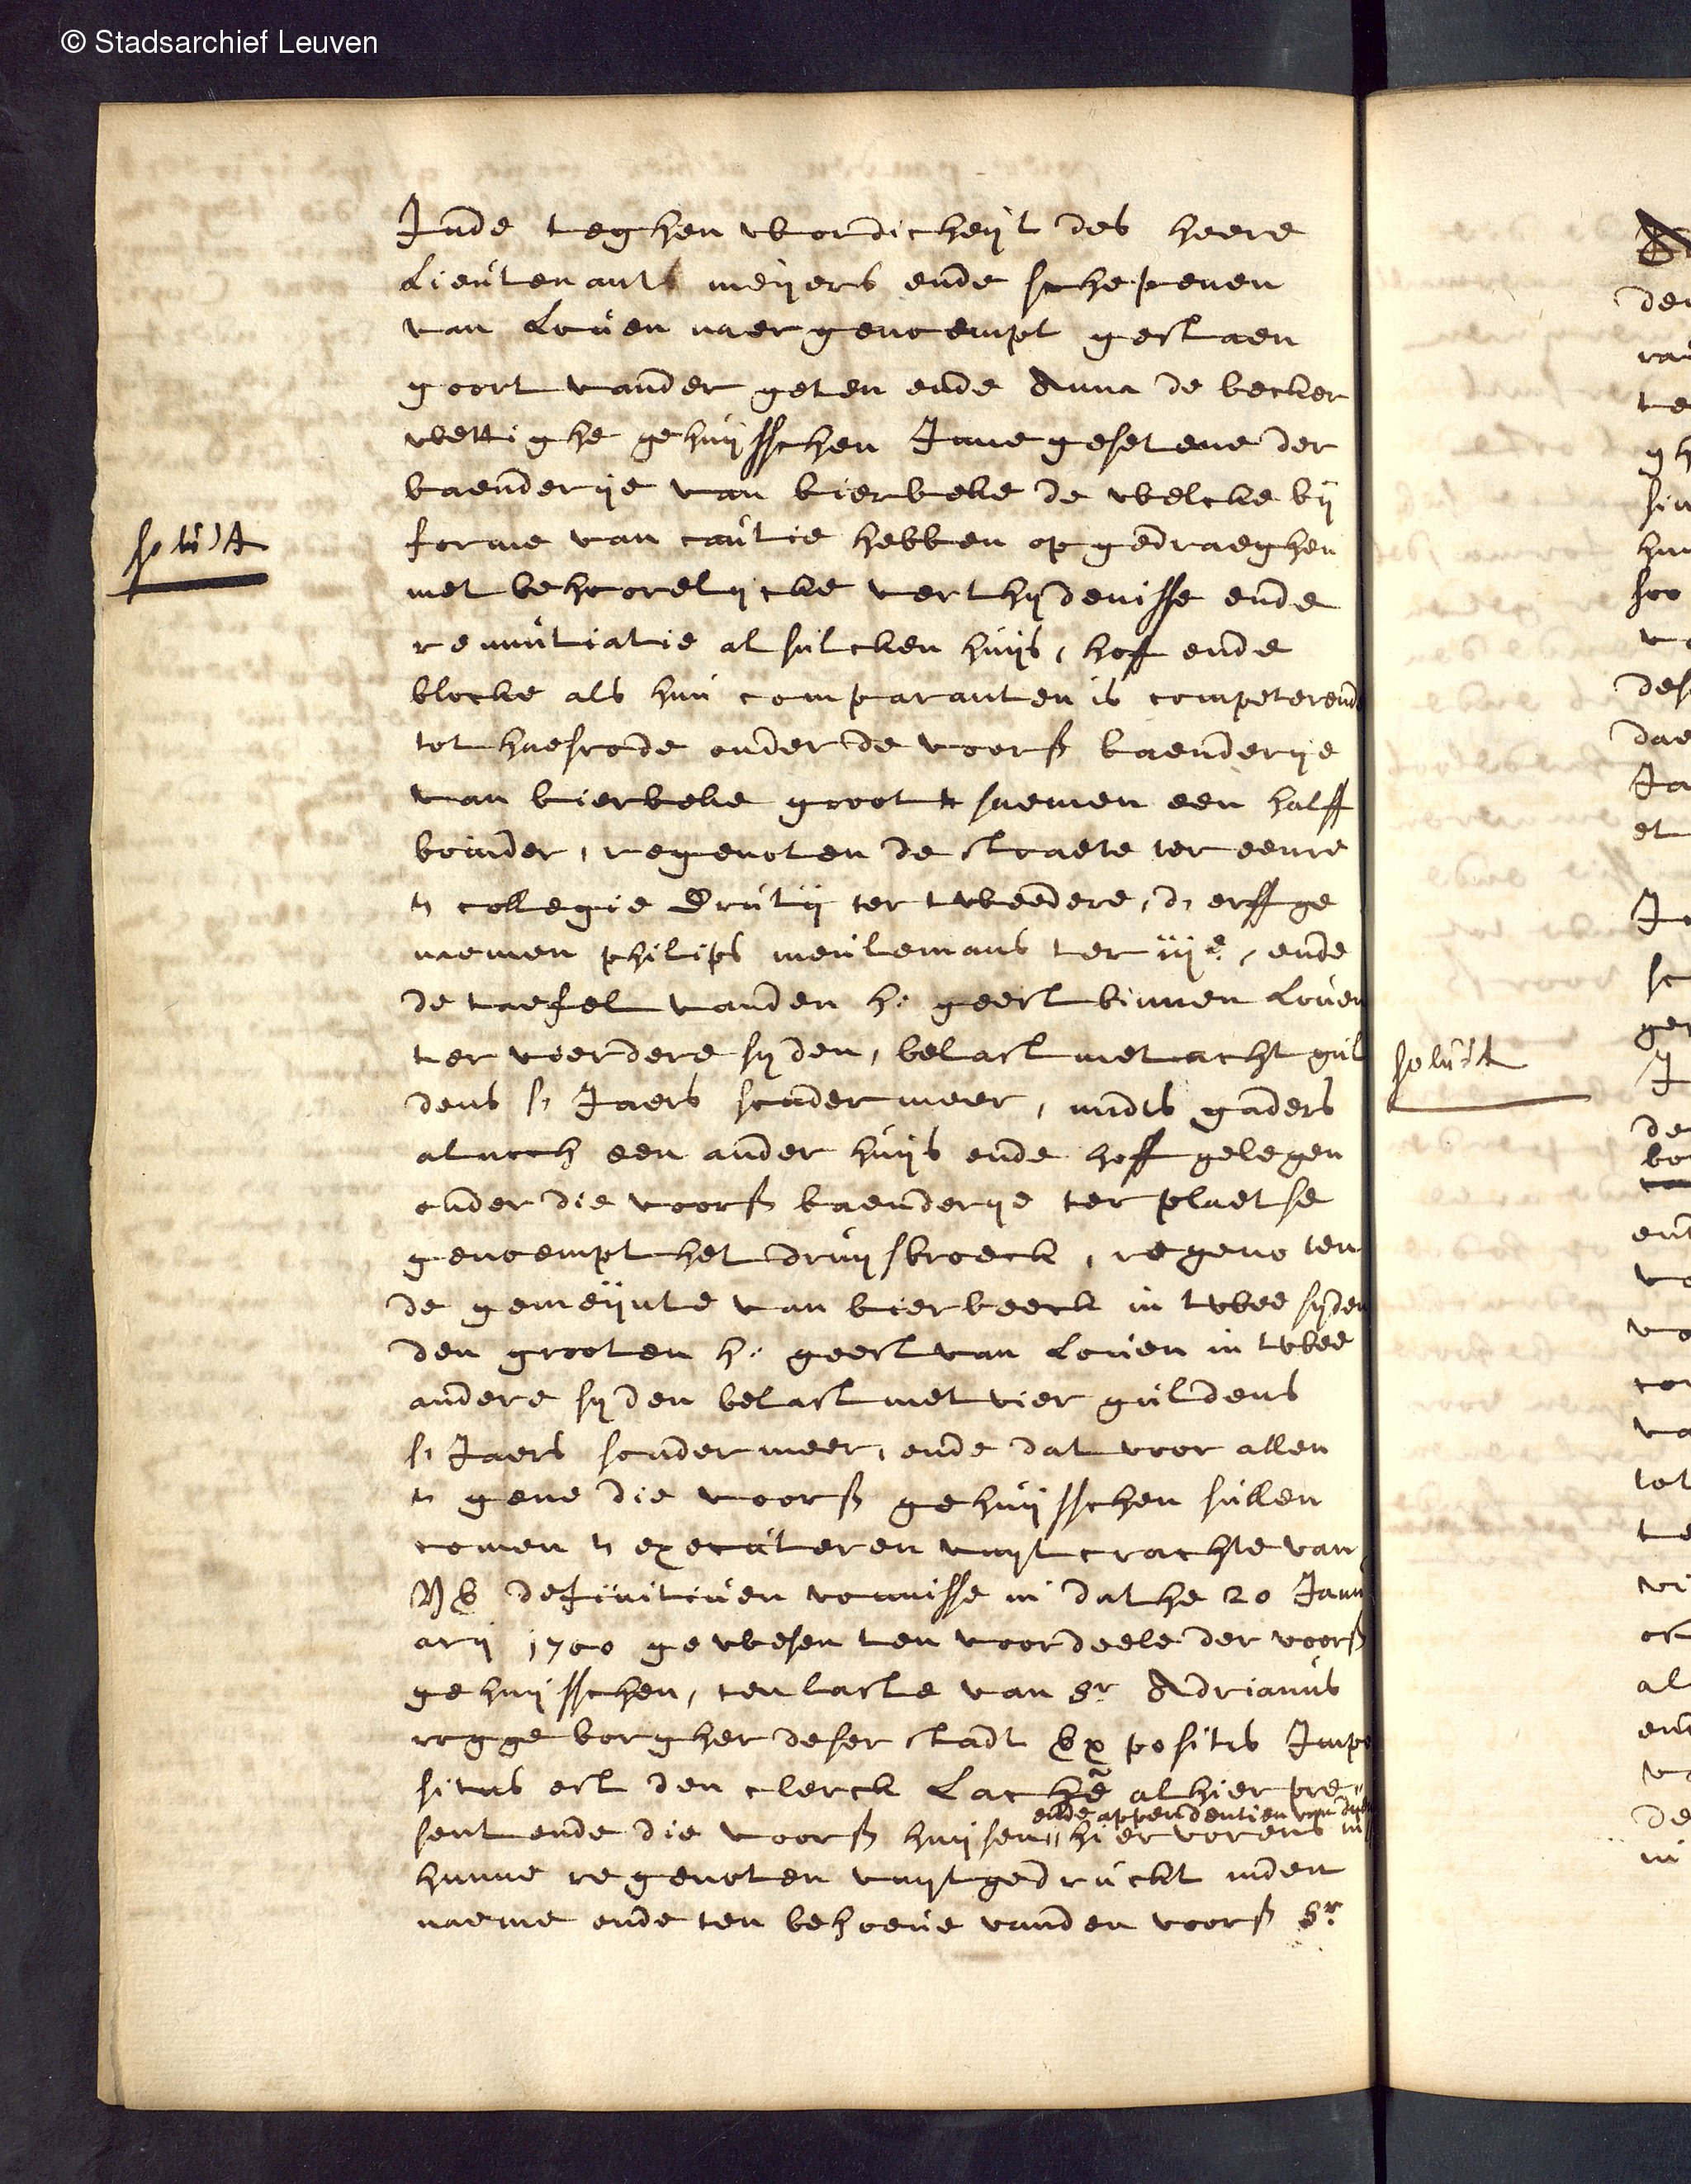 © Stadsarchief Leuven
Inde teghenwordicheijt des heere
Lieutenants meijers ende schepenen
van Loven naergenoempt gestaen
goort vander geten ende Anna de becker
wettighe gehuijsschen Innegesetene der
baenderije van bierbeke de welcke bij
solvit
forme van cautie hebben opgedraeghen
met behoorelijcke verthijdenisse ende
renuntiatie alsulcken huijs, hoff ende
blocke als hun comparanten is competerende
tot haesrode onder de voorß baenderije
van bierbeke groot tsaemen een halff
boinder, regenoten de straete ter eenre
t, collegie Drutij ter tweedere, d, erffge
naemen philips meulemans ter iije, ende
de taefel vanden h: geest binnen Loven
ter vierdere sijden, belast met acht gul
dens s, Jaers sonder meer, midts gaders
alnoch een ander huijs ende hoff gelegen
onder die voorß baenderije ter plaetse
genoempt het druijsbroeck, regenoten
de gemeijnte van bierbeeck in twee sijden
den grooten h: geest van Loven in twee
andere sijden belast met vier guldens
s, Jaers sonder meer, ende dat voor allen
t, gene die voorß gehuijsschen sullen
comen t, executeren vuijt crachte van
definitiven vonnisse in dathe 20 Janu
arij 1700 gewesen ten voordeele der voorß
gehuijsschen, ten laste van Sr Adrianus
rogge borgher deser stadt Expositis Impo
situs est den clerck alhier pre
ende appendentien van dijen
sent ende die voorß huijsen hier vorens in
hunne regenoten vuijtgedruckt inden
naeme ende ten behoeve vanden voorß Sr
solvit